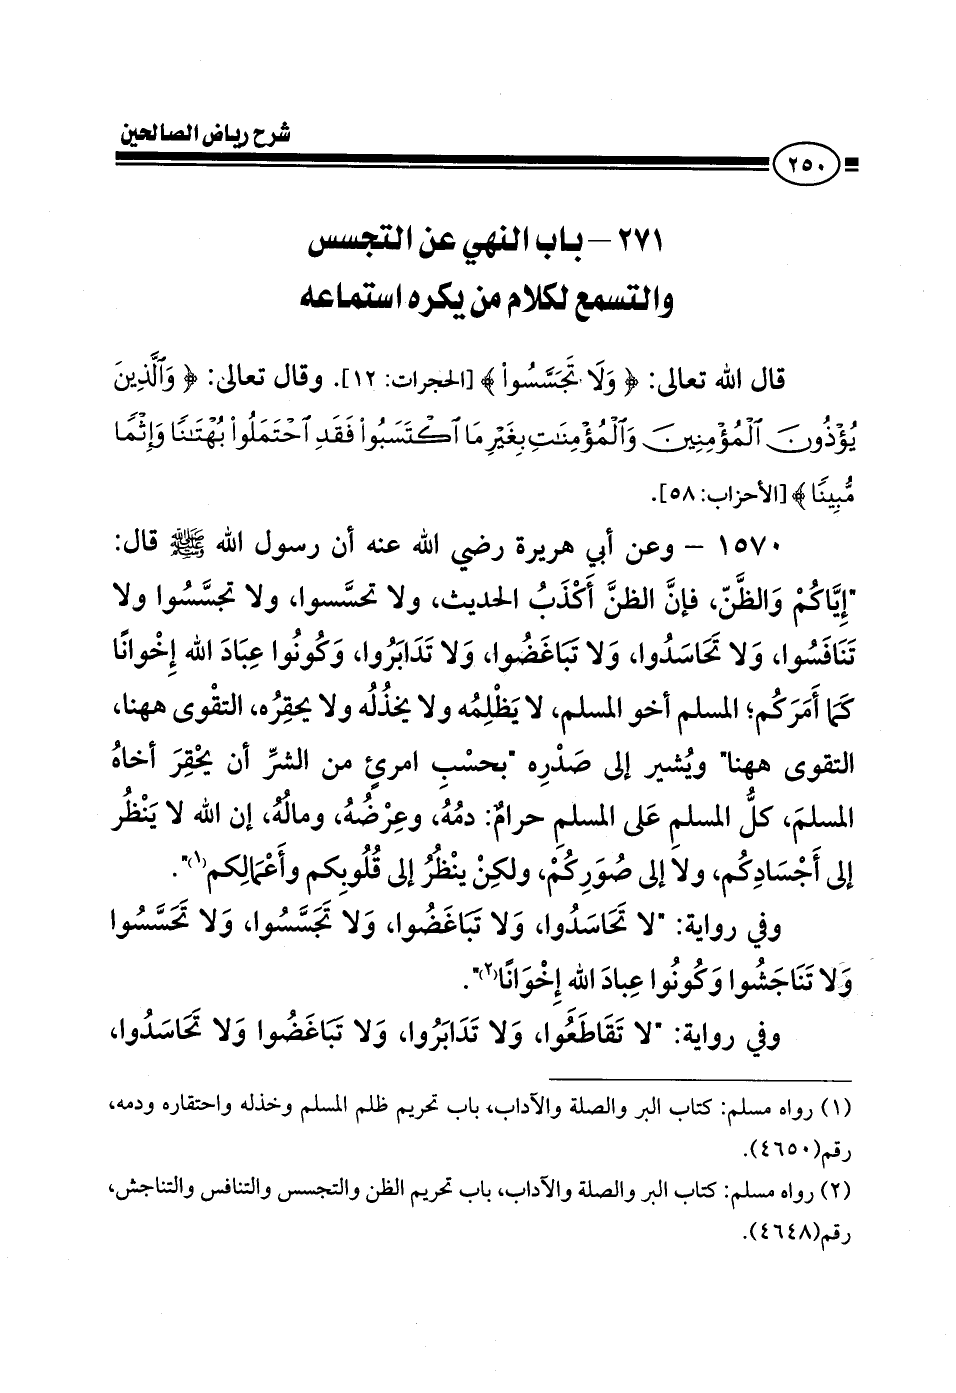 شرح رياض الصالحين
٢٥٠
٢٧١ – باب النهي عن التجسس
والتسمع لكلام من يكره استماعه
قال الله تعالى: ﴿ وَلَا تَجَسَّسُواْ ﴾ [الحجرات: ١٢]. وقال تعالى: ﴿ وَٱلَّذِينَ
يُؤْذُونَ ٱلْمُؤْمِنِينَ وَٱلْمُؤْمِنَٰتِ بِغَيْرِ مَا ٱكْتَسَبُواْ فَقَدِ ٱحْتَمَلُواْ بُهْتَٰنًا وَإِثْمًا
مُّبِينًا ﴾ [الأحزاب: ٥٨].
١٥٧٠ – وعن أبي هريرة رضي الله عنه أن رسول الله ﷺ قال:
"إِيَّاكُمْ وَالظَّنّ، فإنَّ الظنَّ أَكْذَبُ الحديث، ولا تحسَّسوا، ولا تجسَّسُوا ولا
تَنَافَسُوا، وَلا تَحَاسَدُوا، وَلا تَبَاغَضُوا، وَلا تَدَابَرُوا، وَكُونُوا عِبَادَ الله إِخْوانًا
كَمَا أَمَرَكُم؛ المسلم أخو المسلم، لا يَظْلِمُه ولا يخذُلُه ولا يحقِرُه، التقْوى ههنا،
التقوى ههنا" ويُشير إلى صَدْرِه "بحسْبِ امرئ من الشرِّ أن يحْقِرَ أخاهُ
المسلمَ، كلُّ المسلمِ عَلى المسلمِ حرامٌ: دمُهُ، وعِرْضُهُ، ومالُهُ، إن الله لا يَنْظُر
إلى أَجْسَادِكُم، ولا إلى صُوَرِكُمْ، ولكِنْ ينْظُرُ إلى قُلُوبِكم وأَعْمَالِكم(١)".
وفي رواية: "لا تَحَاسَدُوا، وَلا تَبَاغَضُوا، وَلا تَجَسَّسُوا، وَلا تَحَسَّسُوا
وَلا تَنَاجَشُوا وَكُونُوا عِبادَ الله إِخْوَانًا(٢)".
وفي رواية: "لا تَقَاطَعُوا، وَلا تَدَابَرُوا، وَلا تَبَاغَضُوا وَلا تَحَاسَدُوا،
(١) رواه مسلم: كتاب البر والصلة والآداب، باب تحريم ظلم المسلم وخذله واحتقاره ودمه،
رقم(٤٦٥٠).
(٢) رواه مسلم: كتاب البر والصلة والآداب، باب تحريم الظن والتجسس والتنافس والتناجش،
رقم(٤٦٤٨).